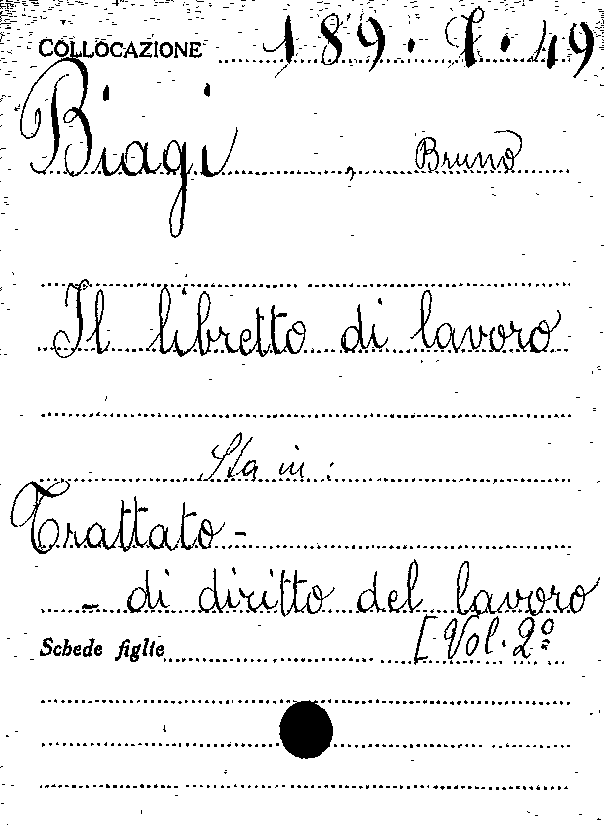 COLLOCAZIONE 189. I. 49
Biagi, Bruno
Il libretto di lavoro
Sta in:
Trattato -
- di diritto del lavoro
Schede figlie [Vol. 2º